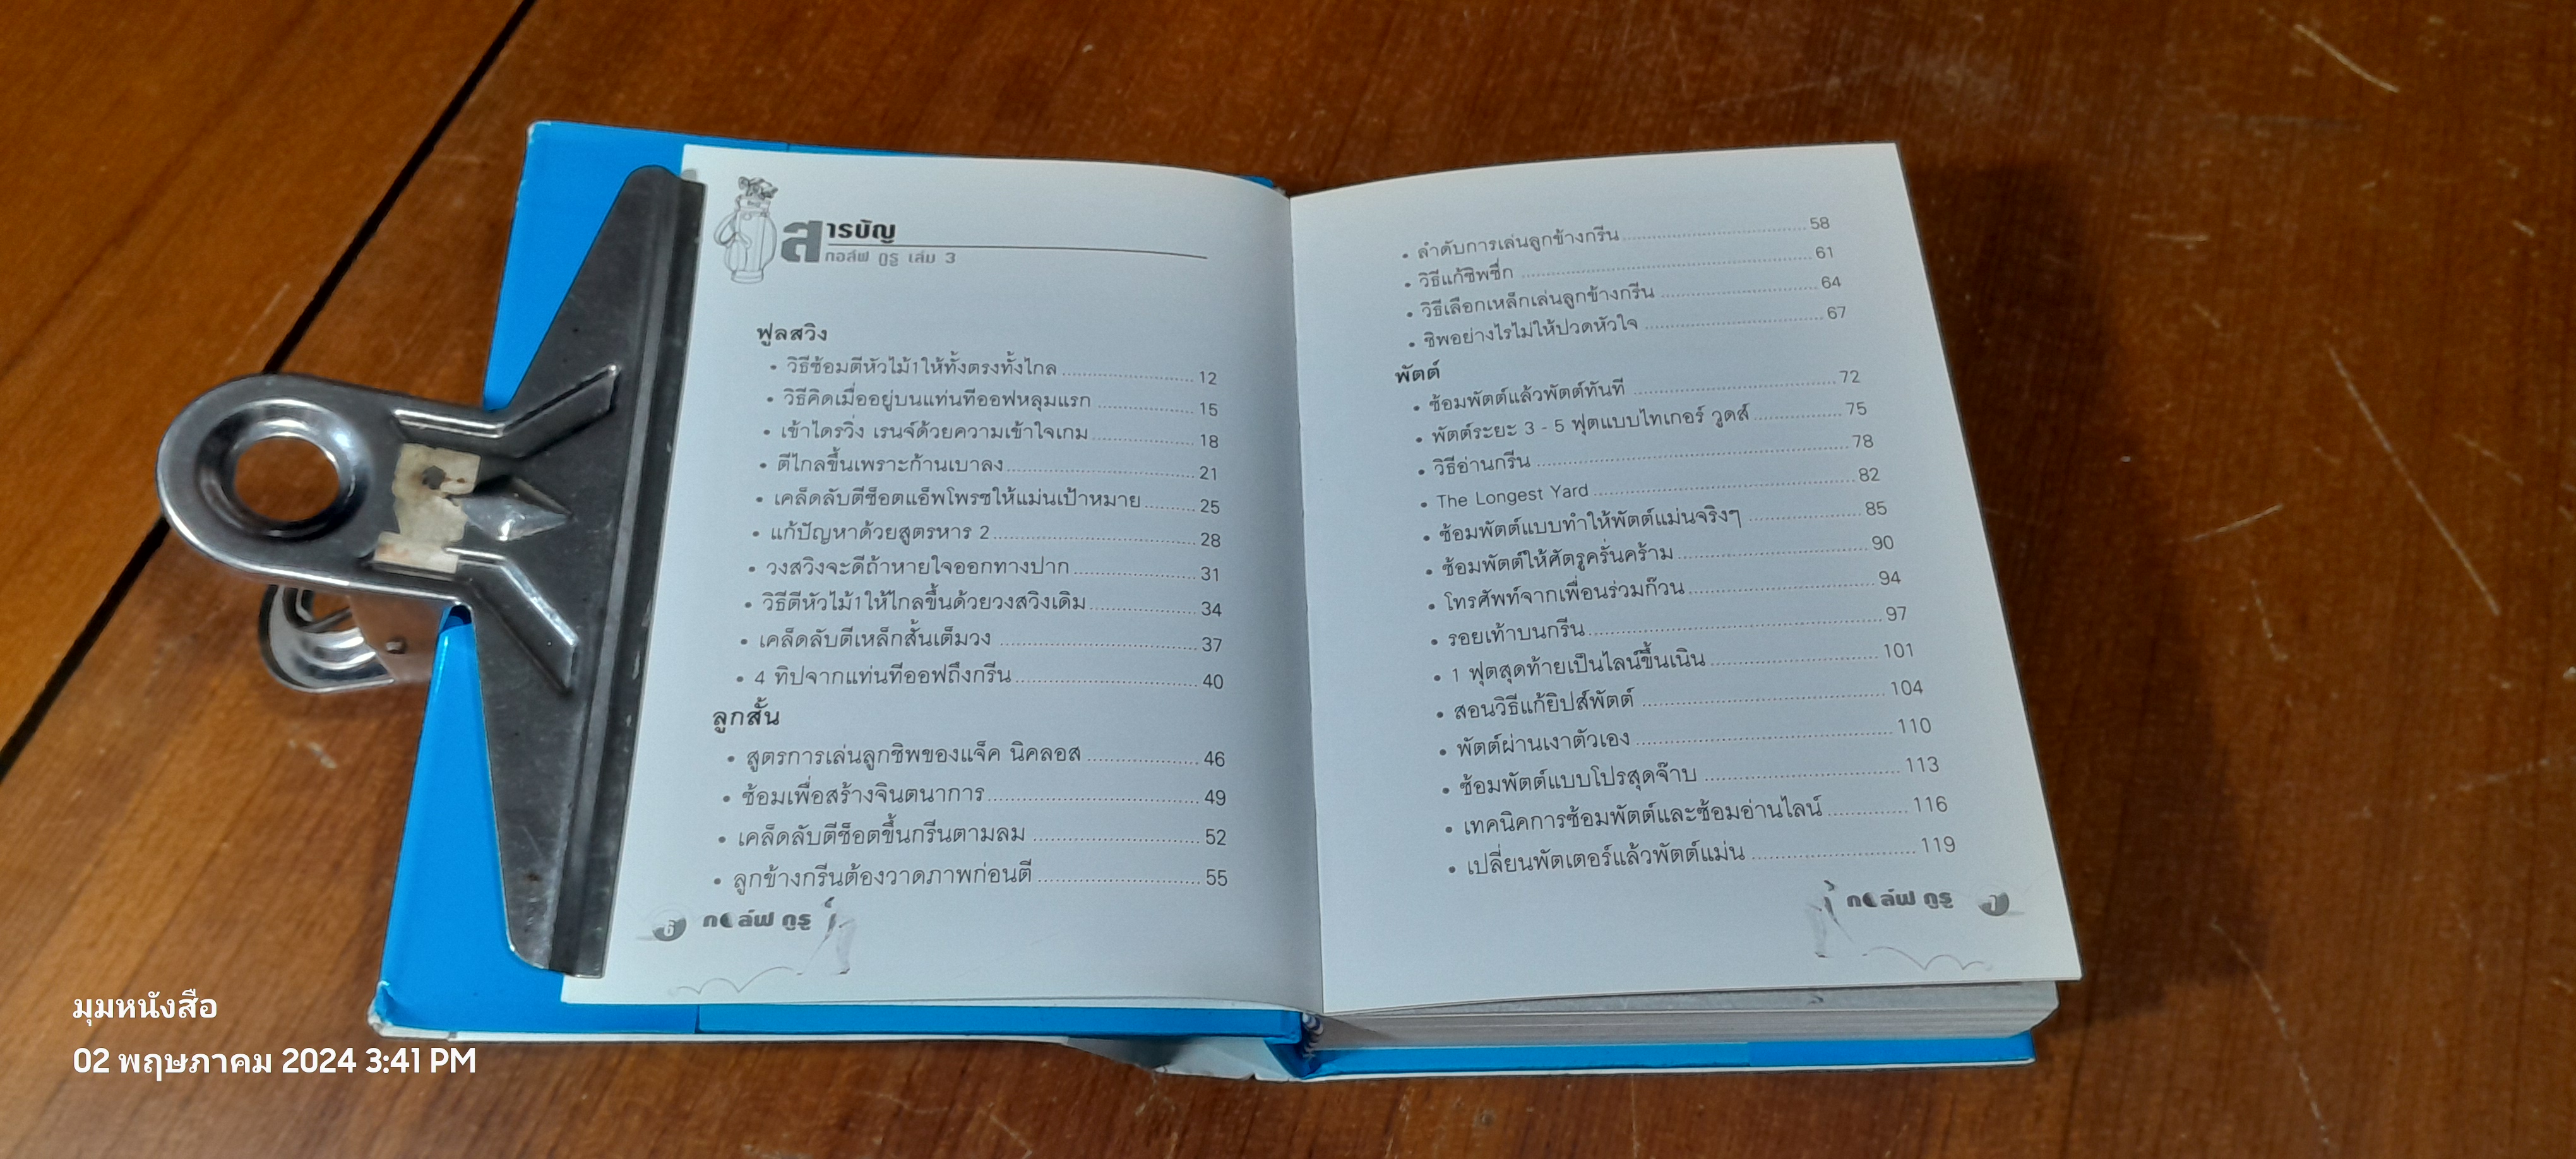 สารบัญ
กอล์ฟ กูรู เล่ม 3
ฟูลสวิง
• วิธีซ้อมตีหัวไม้1ให้ทั้งตรงทั้งไกล 12
• วิธีคิดเมื่ออยู่บนแท่นทีออฟหลุมแรก 15
• เข้าไดรวิ่ง เรนจ์ด้วยความเข้าใจเกม 18
• ตีไกลขึ้นเพราะก้านเบาลง 21
• เคล็ดลับตีช็อตแอ็พโพรชให้แม่นเป้าหมาย 25
• แก้ปัญหาด้วยสูตรหาร 2 28
• วงสวิงจะดีถ้าหายใจออกทางปาก 31
• วิธีตีหัวไม้1ให้ไกลขึ้นด้วยวงสวิงเดิม 34
• เคล็ดลับตีเหล็กสั้นเต็มวง 37
• 4 ทิปจากแท่นทีออฟถึงกรีน 40
ลูกสั้น
• สูตรการเล่นลูกชิพของแจ็ค นิคลอส 46
• ซ้อมเพื่อสร้างจินตนาการ 49
• เคล็ดลับตีช็อตขึ้นกรีนตามลม 52
• ลูกข้างกรีนต้องวาดภาพก่อนตี 55
6 กอล์ฟ กูรู
• ลำดับการเล่นลูกข้างกรีน 58
• วิธีแก้ชิพชึ่ก 61
• วิธีเลือกเหล็กเล่นลูกข้างกรีน 64
• ชิพอย่างไรไม่ให้ปวดหัวใจ 67
พัตต์
• ซ้อมพัตต์แล้วพัตต์ทันที 72
• พัตต์ระยะ 3 - 5 ฟุตแบบไทเกอร์ วูดส์ 75
• วิธีอ่านกรีน 78
• The Longest Yard 82
• ซ้อมพัตต์แบบทำให้พัตต์แม่นจริงๆ 85
• ซ้อมพัตต์ให้ศัตรูครั่นคร้าม 90
• โทรศัพท์จากเพื่อนร่วมก๊วน 94
• รอยเท้าบนกรีน 97
• 1 ฟุตสุดท้ายเป็นไลน์ขึ้นเนิน 101
• สอนวิธีแก้ยิปส์พัตต์ 104
• พัตต์ผ่านเงาตัวเอง 110
• ซ้อมพัตต์แบบโปรสุดจ๊าบ 113
• เทคนิคการซ้อมพัตต์และซ้อมอ่านไลน์ 116
• เปลี่ยนพัตเตอร์แล้วพัตต์แม่น 119
กอล์ฟ กูรู 7
มุมหนังสือ
02 พฤษภาคม 2024 3:41 PM